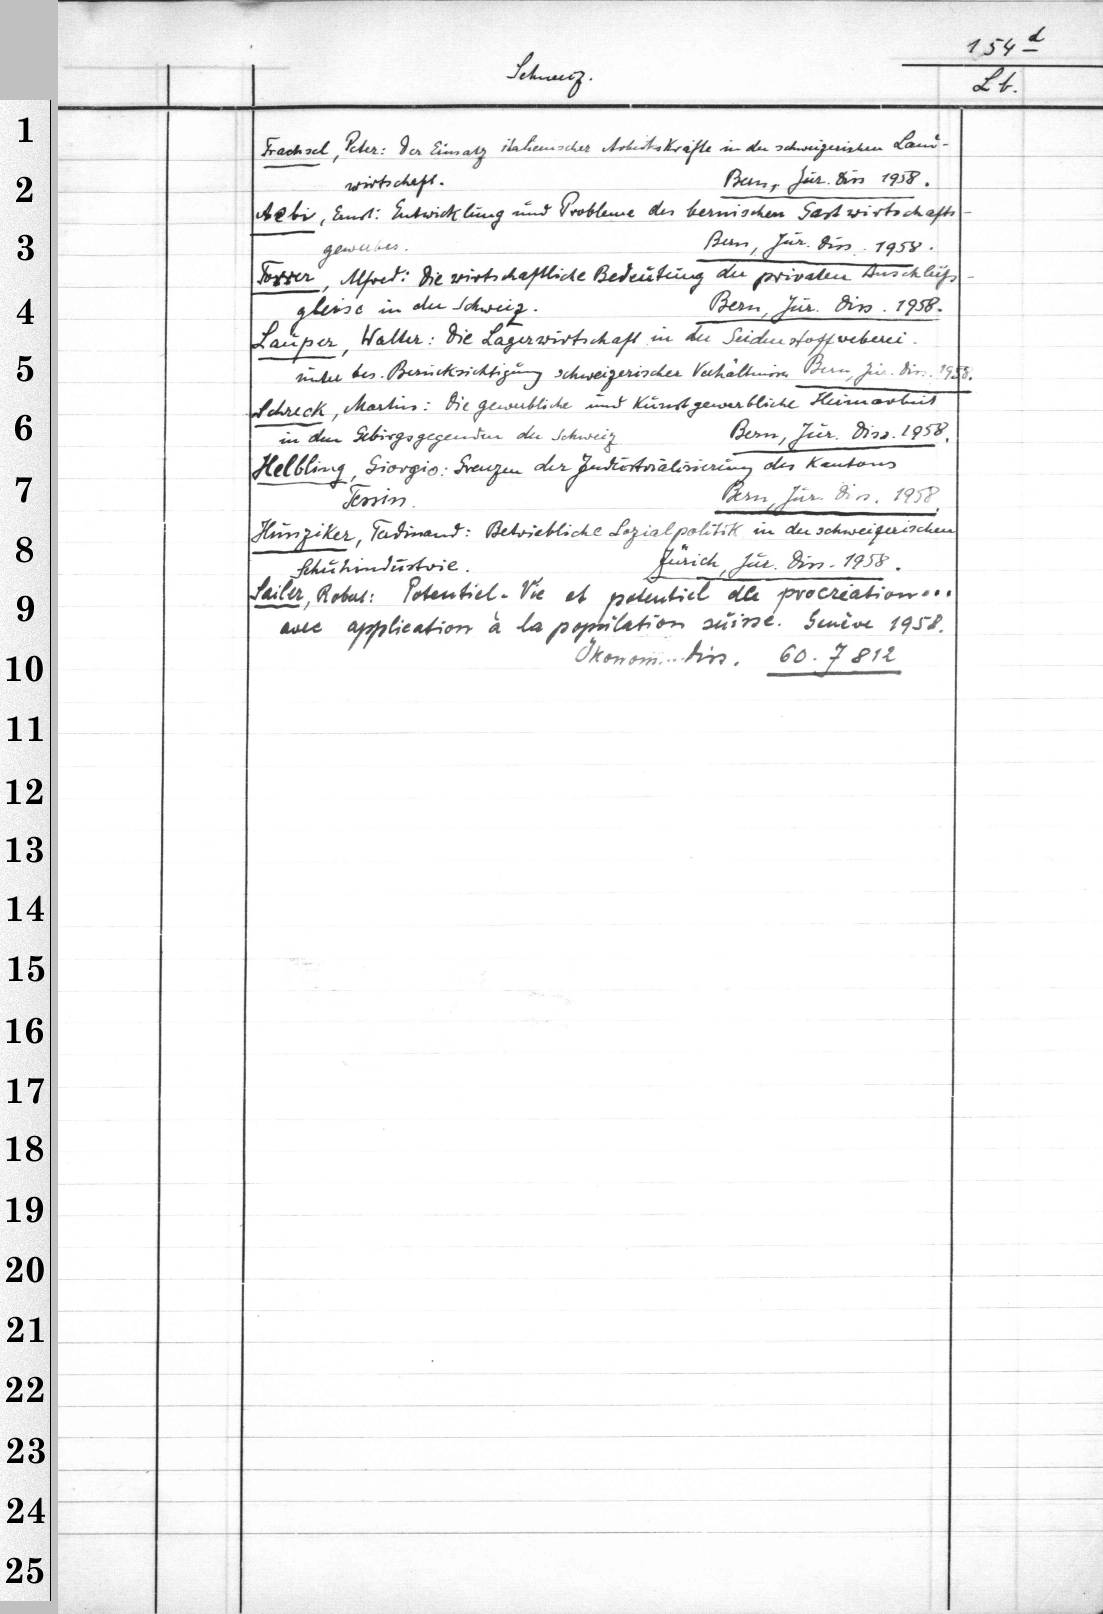 154 d
Schweiz.
Lb.
1
Trachsel, Peter: Der Einsatz italienischer Arbeitskräfte in der schweizerischen Land-
2
wirtschaft. Bern, Jur. Diss 1958.
Aebi, Ernst: Entwicklung und Probleme des bernischen Gastwirtschafts-
3
gewerbes. Bern, Jur. Diss. 1958.
Torrer, Alfred: Die wirtschaftliche Bedeutung der privaten Anschluss-
4
gleise in der Schweiz. Bern, Jur. Diss. 1958.
Lauper, Walter: Die Lagerwirtschaft in der Seidenstoffweberei.
5
unter bes. Berücksichtigung schweizerischer Verhältnisse Bern, Jur. Diss. 1958.
Schreck, Martin: Die gewerbliche und kunstgewerbliche Heimarbeit
6
in den Gebirgsgegenden der Schweiz Bern, Jur. Diss. 1958.
Helbling, Giorgio: Grenzen der Industrialisierung des Kantons
7
Tessin. Bern, Jur. Diss. 1958.
Hunziker, Ferdinand: Betriebliche Sozialpolitik in der schweizerischen
8
Schuhindustrie. Zürich, Jur. Diss. 1958.
Sailer, Robert: Potentiel-Vie et potentiel de procréation...
9
avec application à la population suisse. Genève 1958.
10
Ökonom. Diss. 60.7812
11
12
13
14
15
16
17
18
19
20
21
22
23
24
25